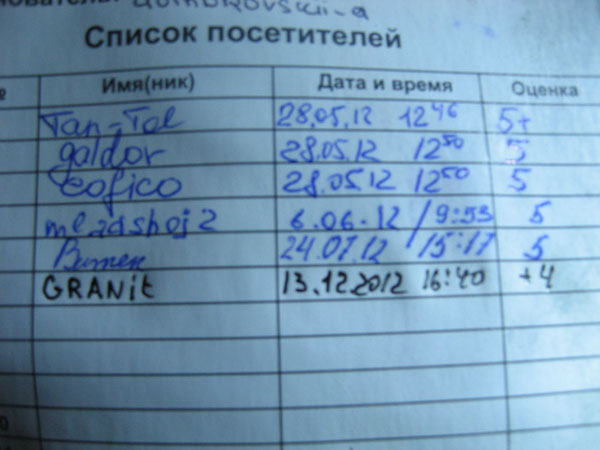 Список посетителей
Имя(ник) Дата и время Оценка
Tan-Tol 28.05.12 12 46 5+
galdor 28.05.12 12 50 5
eofico 28.05.12 12 50 5
mladshoj2 6.06.12 / 9:53 5
24.07.12 / 15:17 5
GRANit 13.12.2012 16:40 +4